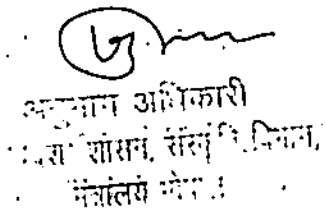 अनुभाग अधिकारी
शासन, संस्कृति विभाग,
मंत्रालय